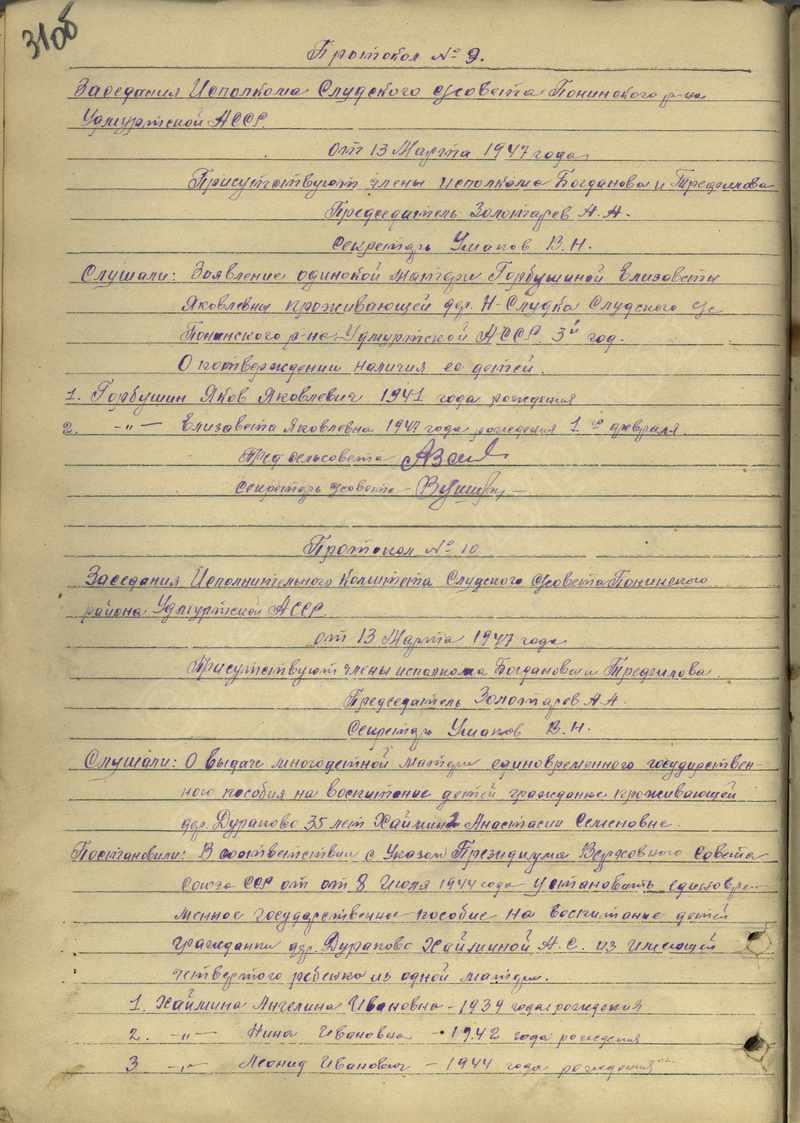 31об
Протокол № 9.
Заседания Исполкома Слудского с/совета Понинского р-на
Удмуртской АССР.
от 13 Марта 1947 года
Присутствуют члены исполкома Богданова и Трефилова
Председатель Золотарев А.А.
Секретарь Ушаков В.Н.
Слушали: Заявление одинокой матери Горбушиной Елизаветы
Яковлевны проживающей дер. Н-Слудка Слудского с/с
Понинского р-на Удмуртской АССР. 3й год.
О потверждении наличия ее детей.
1. Горбушин Яков Яковлевич 1941 года рождения
2. -"- Елизавета Яковлевна 1947 года рождения 1го февраля.
Пред сельсовета
Секретарь с/совета -
Протокол № 10
Заседания Исполнительного Комитета Слудского с/совета Понинского
района Удмуртской АССР
от 13 Марта 1947 года
Присутствуют члены исполкома Богданова и Трефилова.
Председатель Золотарев А.А.
Секретарь Ушаков В.Н.
Слушали: О выдаче многодетной матери единовременного государствен-
ного пособия на воспитание детей гражданке проживающей
дер. Дураково 35 лет Анастасии Семеновне.
Постановили: В соответствии с Указом Президиума Верховного Совета
Союза ССР от от 8 Июля 1944 года Установить единовре-
менное государственное пособие на воспитание детей
гражданки дер. Дураково Хайминой А.С. из имеющей
четвертого ребенка из одной матери.
1. Хаймина Ангелина Ивановна - 1939 года рождения
2. -"- Нина Ивановна - 1942 года рождения
3 -"- Леонид Иванович - 1944 года рождения